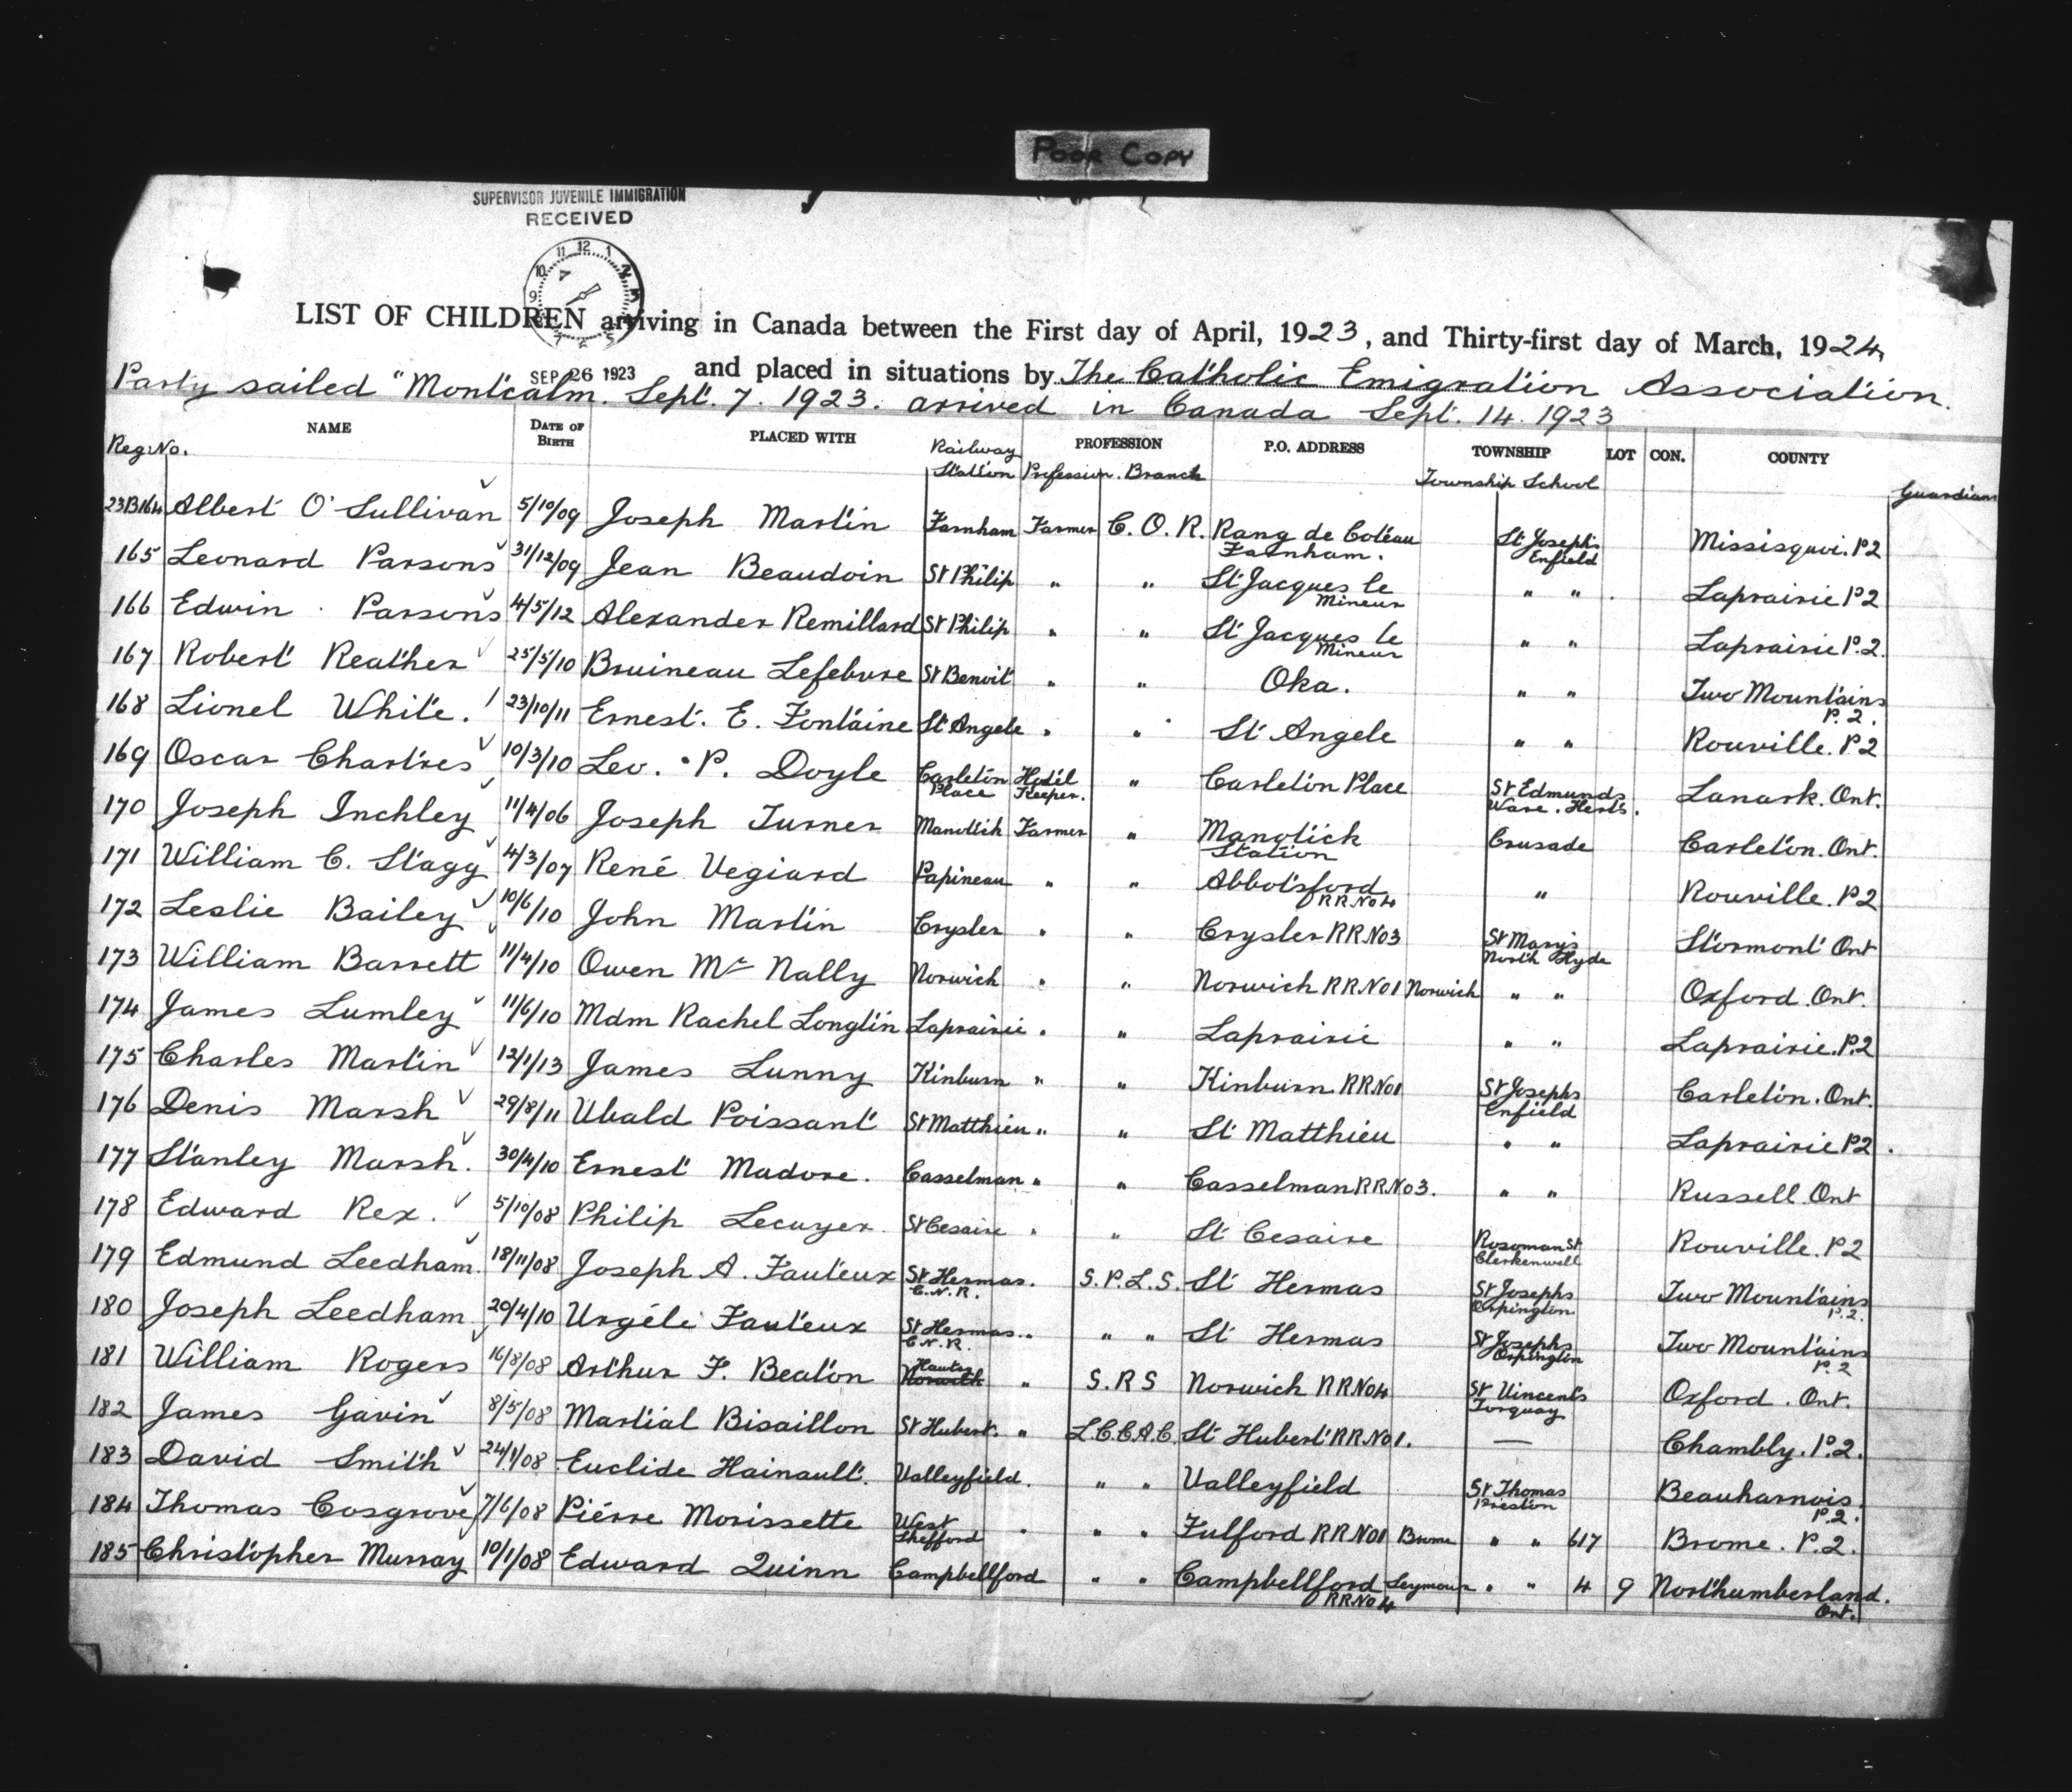 POOR COPY
SUPERVISOR JUVENILE IMMIGRATION
RECEIVED
LIST OF CHILDREN arriving in Canada between the First day of April, 1923, and Thirty-first day of March, 1924,
SEP 26 1923 and placed in situations by The Catholic Emigration Association.
Party sailed "Montcalm. Sept. 7. 1923. arrived in Canada Sept. 14. 1923
Reg: No. NAME DATE OF BIRTH PLACED WITH Railway Station PROFESSION Profession. Branch P.O. ADDRESS TOWNSHIP Township School LOT CON. COUNTY Guardian
23B164 Albert O'Sullivan 5/10/09 Joseph Martin Farnham Farmer C. O. R. Rang de Coteau Farnham. St Joseph's Enfield Missisquoi. P2
165 Leonard Parsons 31/12/09 Jean Beaudoin St Philip " " St Jacques le Mineur " " Laprairie P2
166 Edwin Parsons 4/5/12 Alexander Remillard St Philip " " St Jacques le Mineur " " Laprairie P.2.
167 Robert Reather 25/5/10 Bruineau Lefebvre St Benoit " " Oka. " " Two Mountains P.2.
168 Lionel White. 23/10/11 Ernest. E. Fontaine St Angele " " St Angele " " Rouville. P.2
169 Oscar Chartres 10/3/10 Leo. P. Doyle Carleton Place Hotel Keeper. " Carleton Place St Edmunds Ware. Herts. Lanark. Ont.
170 Joseph Inchley 11/4/06 Joseph Turner Manotick Farmer " Manotick Station Crusade Carleton. Ont.
171 William C. Stagg 4/3/07 René Vegiard Papineau " " Abbotsford RR.No4 " Rouville. P2
172 Leslie Bailey 10/6/10 John Martin Crysler " " Crysler RR.No3 St Mary's North Hyde Stormont Ont
173 William Barrett 11/4/10 Owen Mc Nally Norwich " " Norwich RR.No1 Norwich " " Oxford. Ont.
174 James Lumley 11/6/10 Mdm Rachel Longtin Laprairie " " Laprairie " " Laprairie. P.2
175 Charles Martin 12/1/13 James Lunny Kinburn " " Kinburn RR.No1 St Josephs Enfield Carleton. Ont.
176 Denis Marsh 29/8/11 Ubald Poissant St Matthieu " " St Matthieu " " Laprairie P2.
177 Stanley Marsh. 30/4/10 Ernest Madore. Casselman " " Casselman RR.No3. " " Russell Ont
178 Edward Rex. 5/10/08 Philip Lecuyer St Cesaire " " St Cesaire Rosoman St Clerkenwell Rouville. P2
179 Edmund Leedham. 18/11/08 Joseph A. Fauteux St Hermas. C.N.R. S.P.L.S. St Hermas St Josephs Orpington Two Mountains P.2.
180 Joseph Leedham 29/4/10 Urgéli Fauteux St Hermas C.N.R. " " " St Hermas St Josephs Orpington Two Mountains P.2
181 William Rogers 16/8/08 Arthur F. Beaton Norwich " S.R S Norwich RR.No4 St Vincent's Torquay Oxford. Ont.
182 James Gavin 8/5/08 Martial Bisaillon St Hubert. " L.C.C.A.C. St Hubert RR.No1. — Chambly. P.2.
183 David Smith 24/1/08 Euclide Hainault. Valleyfield. " " Valleyfield St Thomas Preston Beauharnois. P.2.
184 Thomas Cosgrove 7/6/08 Piérre Morissette West Shefford " " " Fulford RR.No1 Brome " " 617 Brome. P.2.
185 Christopher Murray 10/1/08 Edward Quinn Campbellford " " Campbellford RR.No4 Seymour " " 4 9 Northumberland. Ont.